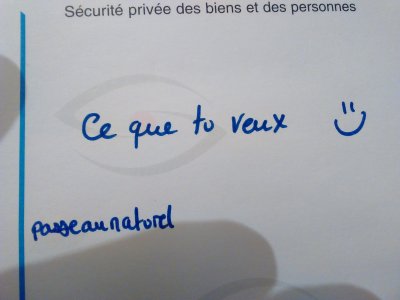 Sécurité privée des biens et des personnes
Ce que tu veux
passeaunaturel